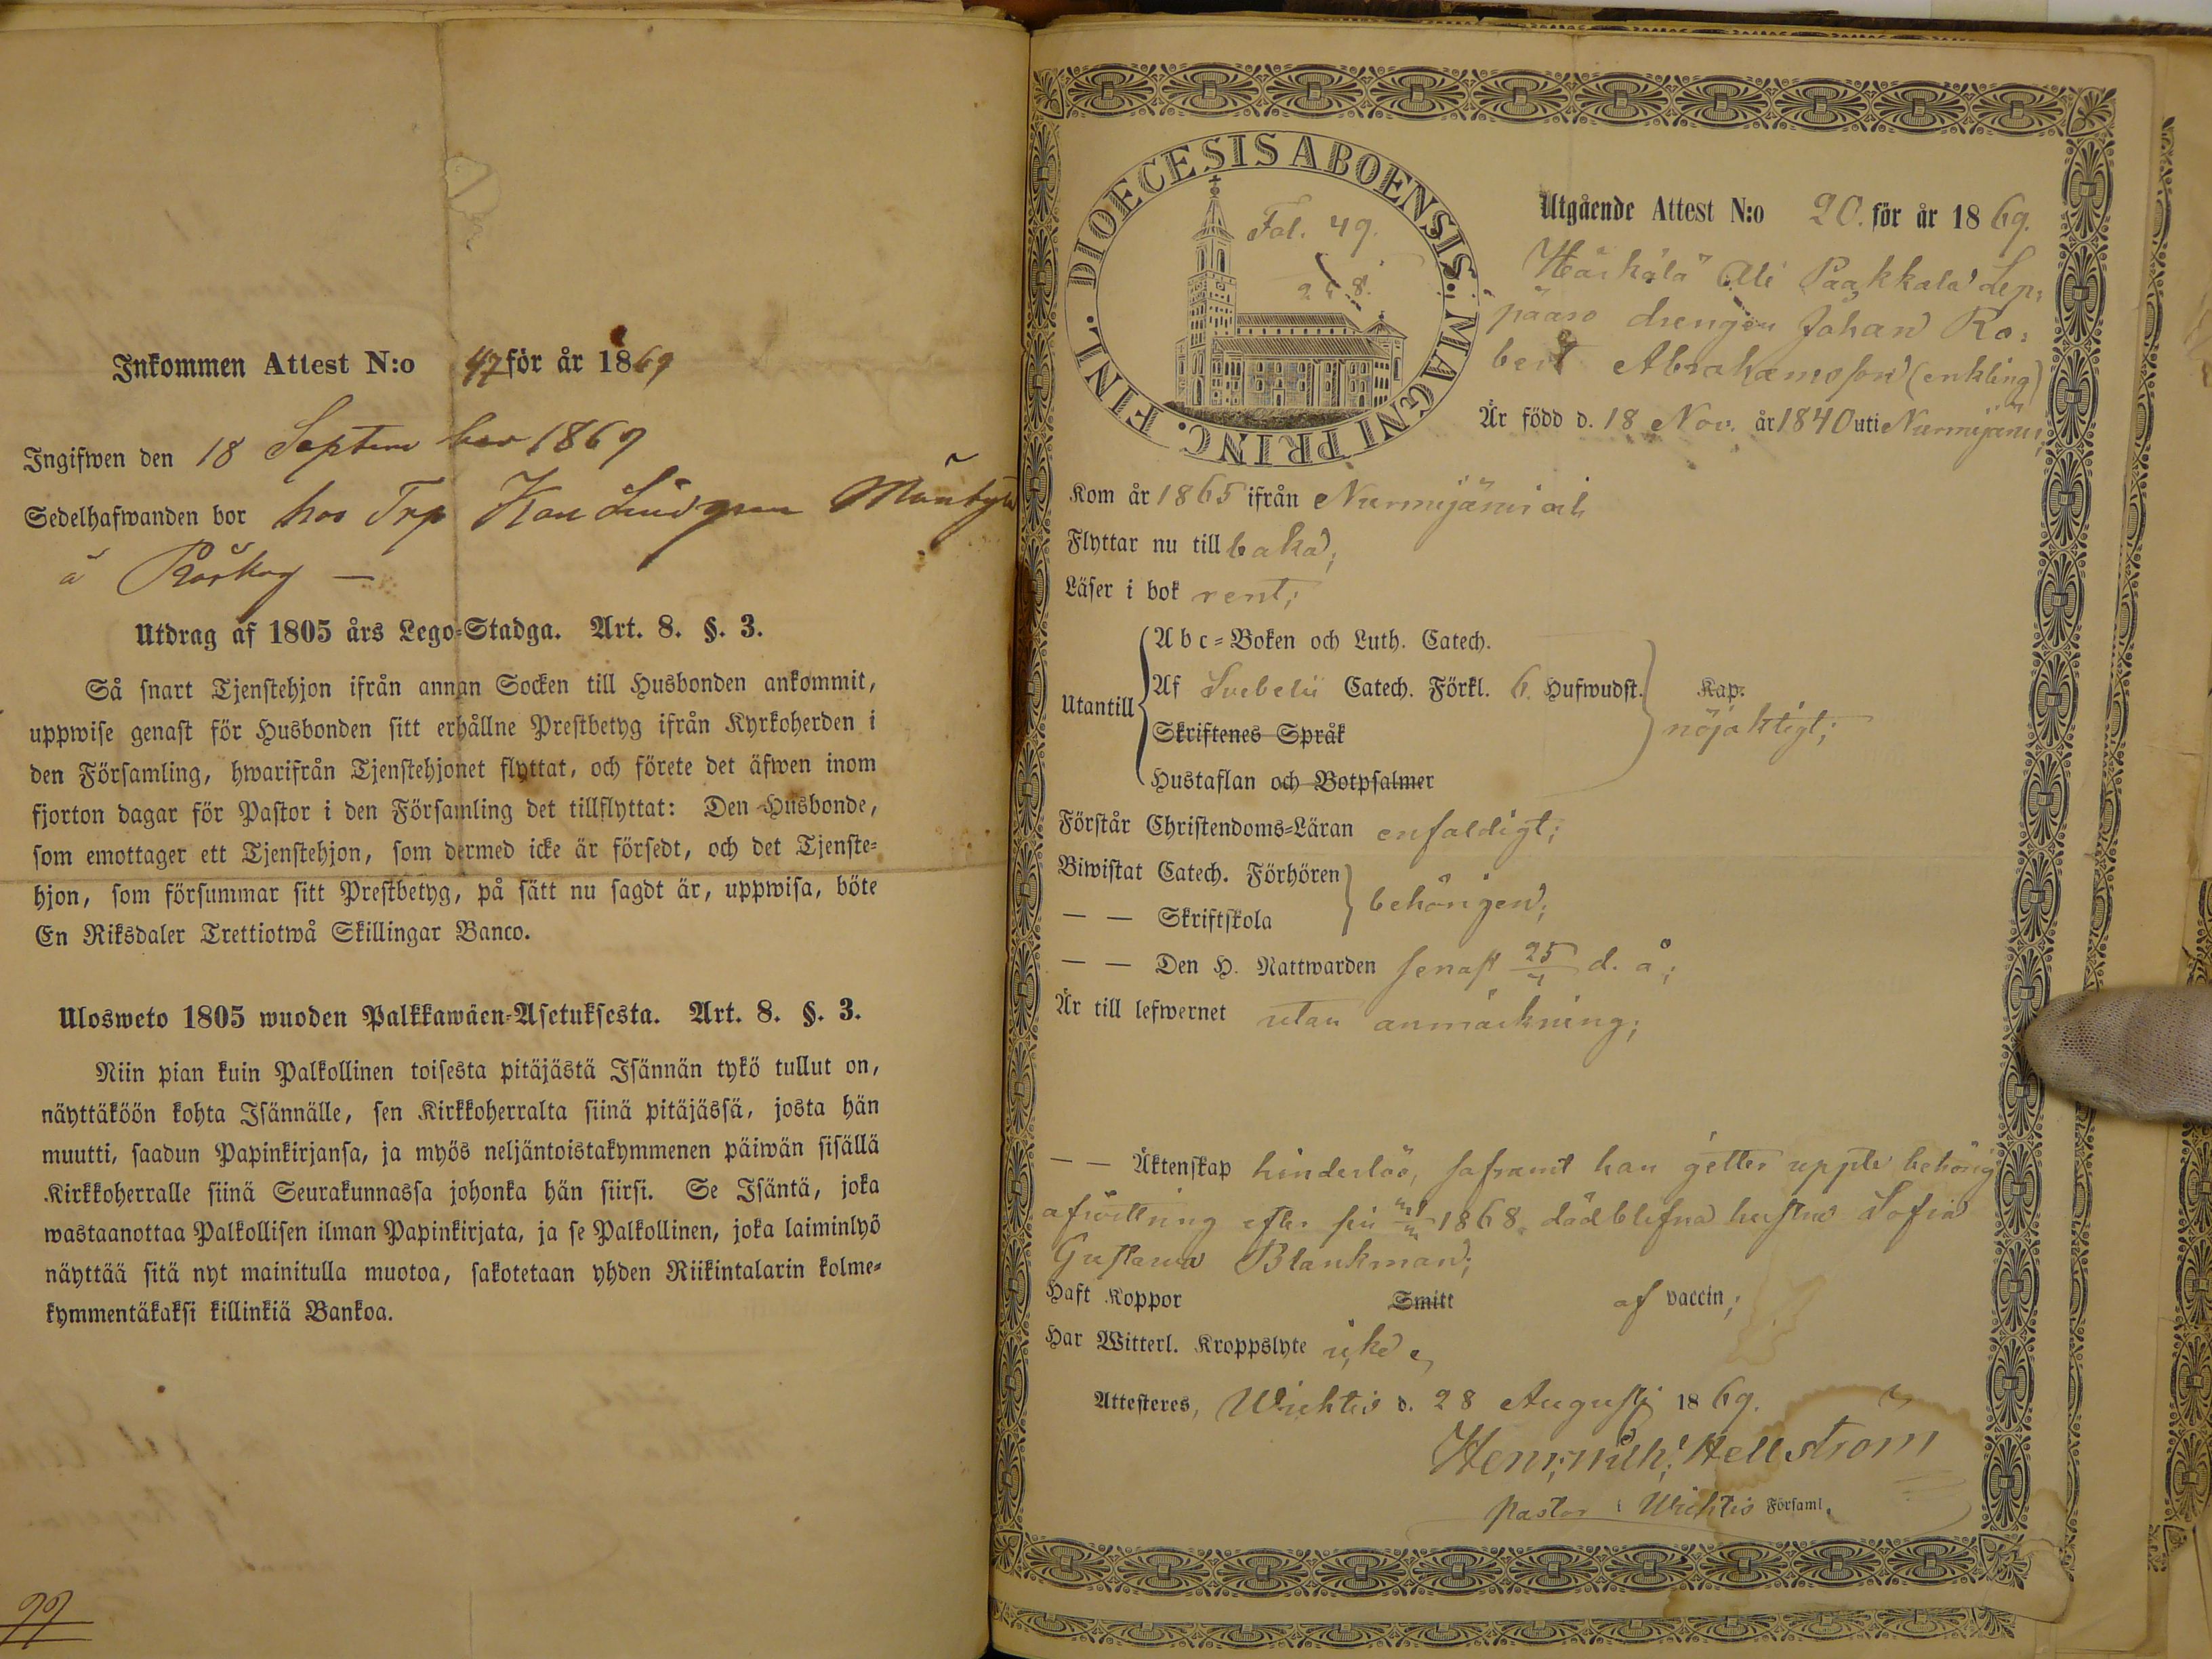 Inkommen Attest N:o 47 för år 1869
Ingifwen den 18 September 1869
Sedelhafwanden bor hos Trp
å Röskog —
Utdrag af 1805 års Lego-Stadga. Art. 8. §. 3.
Så snart Tjenstehjon ifrån annan Socken till Husbonden ankommit,
uppwise genast för Husbonden sitt erhållne Prestbetyg ifrån Kyrkoherden i
den Församling, hwarifrån Tjenstehjonet flyttat, och förete det äfwen inom
fjorton dagar för Pastor i den Församling det tillflyttat: Den Husbonde,
som emottager ett Tjenstehjon, som dermed icke är försedt, och det Tjenste-
hjon, som försummar sitt Prestbetyg, på sätt nu sagdt är, uppwisa, böte
En Riksdaler Trettiotwå Skillingar Banco.
Ulosweto 1805 wuoden Palkkawäen-Asetuksesta. Art. 8. §. 3.
Niin pian kuin Palkollinen toisesta pitäjästä Isännän tykö tullut on,
näyttäköön kohta Isännälle, sen Kirkkoherralta siinä pitäjässä, josta hän
muutti, saadun Papinkirjansa, ja myös neljäntoistakymmenen päiwän sisällä
Kirkkoherralle siinä Seurakunnassa johonka hän siirsi. Se Isäntä, joka
wastaanottaa Palkollisen ilman Papinkirjata, ja se Palkollinen, joka laiminlyö
näyttää sitä nyt mainitulla muotoa, sakotetaan yhden Riikintalarin kolme-
kymmentäkaksi killinkiä Bankoa.
99
DIOECESIS ABOENSIS. MAGNI PRINC. FINL.
Fol. 49.
Utgående Attest N:o 20. för år 1869.
Härkälä Ali Paakkala Lep-
pääro drengen Johan Ro-
bert Abrahamsson (enkling)
Är född d. 18 Nov. år 1840 uti Nurmijärvi;
Kom år 1865 ifrån Nurmijärvi och
Flyttar nu till baka;
Läser i bok rent;
Utantill
Abc-Boken och Luth. Catech.
Af Svebelii Catech. Förkl. 6. Hufwudst. Kap.
Skriftenes Språk
nöjaktigt;
Hustaflan och Botpsalmer
Förstår Christendoms-Läran enfaldigt;
Biwistat Catech. Förhören
— — Skriftskola
behörigen;
— — Den H. Nattwarden senast 25 d. å;
Är till lefwernet utan anmärkning;
— — Äktenskap hinderslös, såframt han gitter uppte behörig
afvittring efter sin 1868 dödblefna hustru Sofia
Gustava Blankman;
Haft Koppor Smitt af vaccin;
Har Witterl. Kroppslyte icke
Attesteres, Wichtis d. 28 Augusti 1869.
Henr. Wilh. Hellström
pastor i Wichtis Församl.